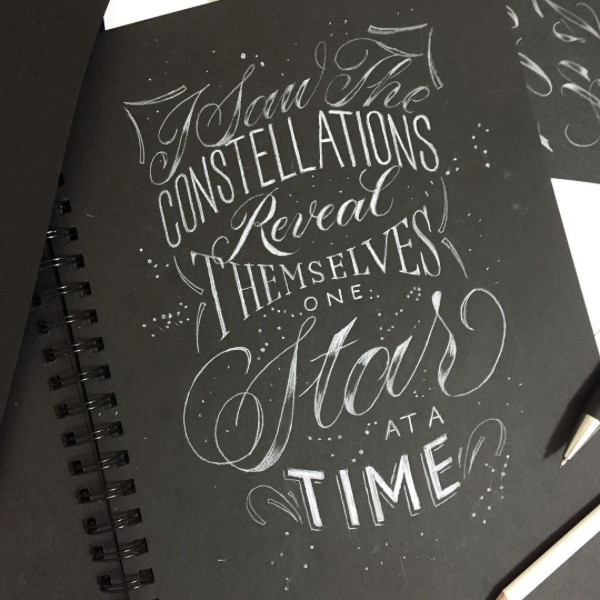 I Saw The
CONSTELLATIONS
Reveal
THEMSELVES
ONE
Star
AT A
TIME